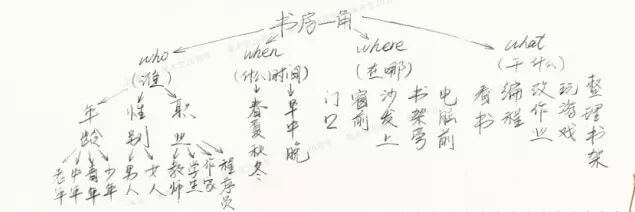 书房一角
who
(谁)
年龄
老年
中年
青年
少年
性别
男人
女人
职业
教师
学生
作家
程序员
when
(什么时间)
春夏秋冬
早中晚
where
(在哪)
门口
窗前
沙发上
书架旁
电脑前
what
(干什么)
看书
编程
改作业
玩游戏
整理书架